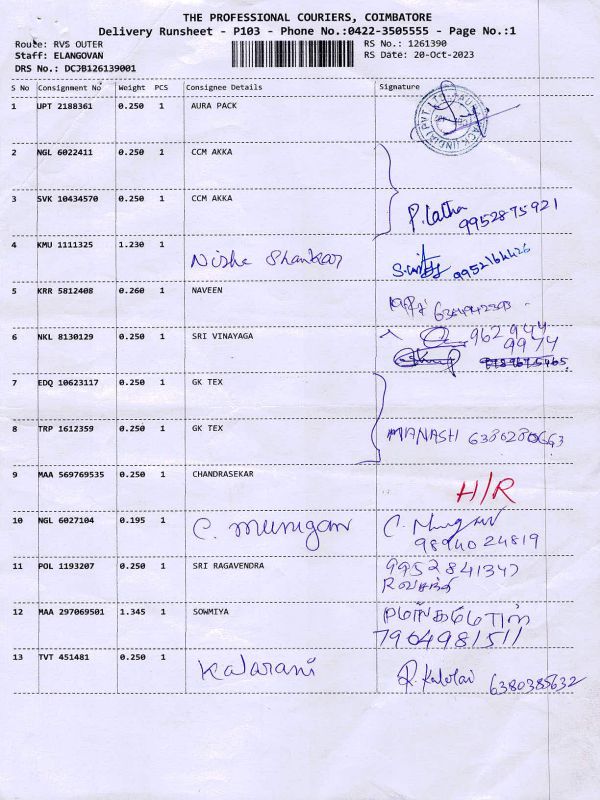 THE PROFESSIONAL COURIERS, COIMBATORE
Delivery Runsheet - P103 - Phone No.:0422-3505555 - Page No.:1
Route: RVS OUTER RS No.: 1261390
Staff: ELANGOVAN RS Date: 20-Oct-2023
DRS No.: DCJB126139001
S No Consignment No Weight PCS Consignee Details Signature
1 UPT 2188361 0.250 1 AURA PACK
2 NGL 6022411 0.250 1 CCM AKKA
3 SVK 10434570 0.250 1 CCM AKKA P. Latha
9952875921
4 KMU 1111325 1.230 1 Nisha Shankar 9952164426
5 KRR 5812408 0.260 1 NAVEEN
6 NKL 8130129 0.250 1 SRI VINAYAGA 962 944
9974
7 EDQ 10623117 0.250 1 GK TEX
8 TRP 1612359 0.250 1 GK TEX MANASH 6380280663
9 MAA 569769535 0.250 1 CHANDRASEKAR H/R
10 NGL 6027104 0.195 1 C. Murugan C. Murugan
9894024819
11 POL 1193207 0.250 1 SRI RAGAVENDRA 9952841347
R வசந்தி
12 MAA 297069501 1.345 1 SOWMIYA
7904981511
13 TVT 451481 0.250 1 Kalarani 6380385632